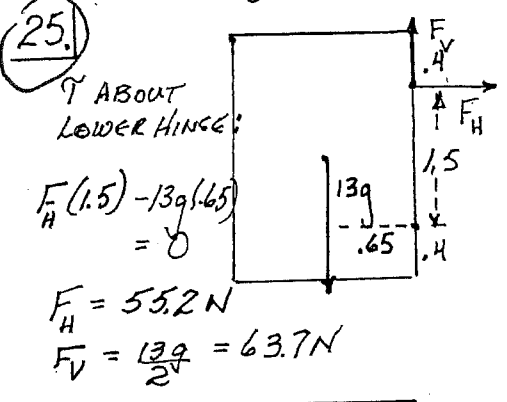 25.
F_V
.4
F_H
τ ABOUT
LOWER HINGE:
1.5
13g
F_H(1.5) - 13g(.65)
= 0
.65
.4
F_H = 55.2N
F_V = 13g/2 = 63.7N